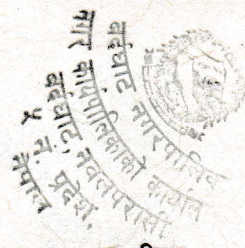 बर्दघाट नगरपालिका
नगर कार्यपालिकाको कार्यालय
बर्दघाट, नवलपरासी
प्रदेश नं. ५
नेपाल